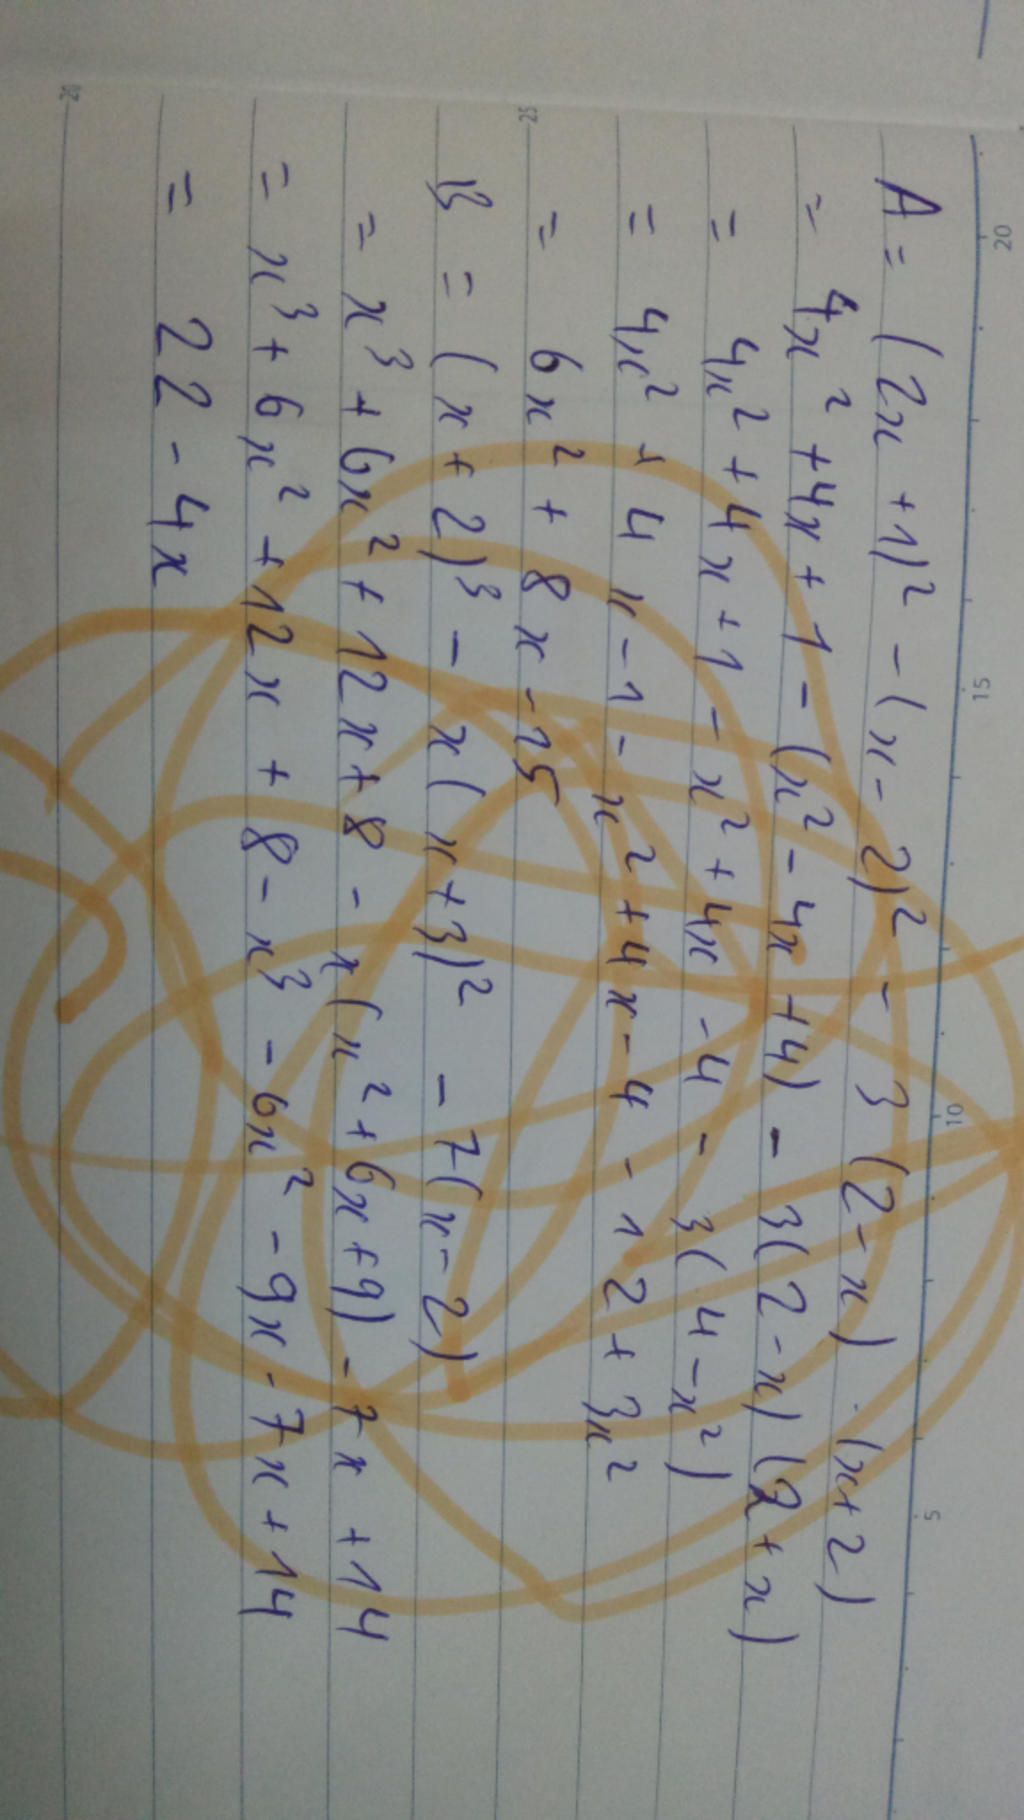 A = (2x + 1)² - (x - 2)² - 3 (2 - x) . (x + 2)
= 4x² + 4x + 1 - (x² - 4x + 4) - 3(2 - x)(2 + x)
= 4x² + 4x + 1 - x² + 4x - 4 - 3(4 - x²)
= 4x² + 4x - 1 - x² + 4x - 4 - 12 + 3x²
= 6x² + 8x - 15
B = (x + 2)³ - x(x + 3)² - 7(x - 2)
= x³ + 6x² + 12x + 8 - x(x² + 6x + 9) - 7x + 14
= x³ + 6x² + 12x + 8 - x³ - 6x² - 9x - 7x + 14
= 22 - 4x
20
15
10
5
25